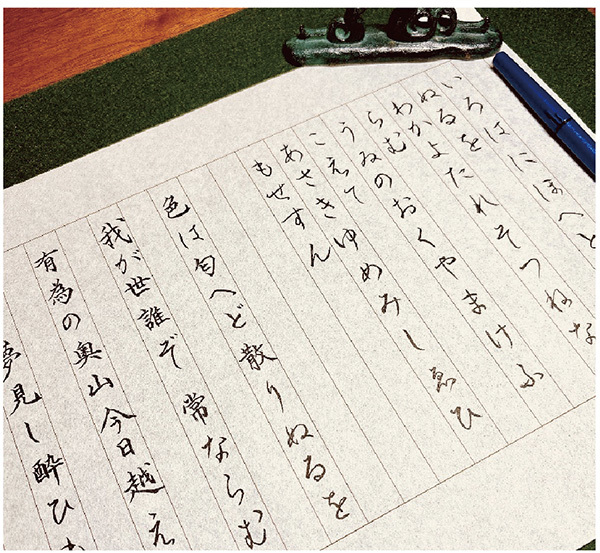 いろはにほへと
ぬるを
わかよたれそつねな
らむ
うゐのおくやまけふ
こえて
あさきゆめみしゑひ
もせすん
色は匂へど散りぬるを
我が世誰ぞ 常ならむ
有為の奥山今日越え
夢見し酔ひ